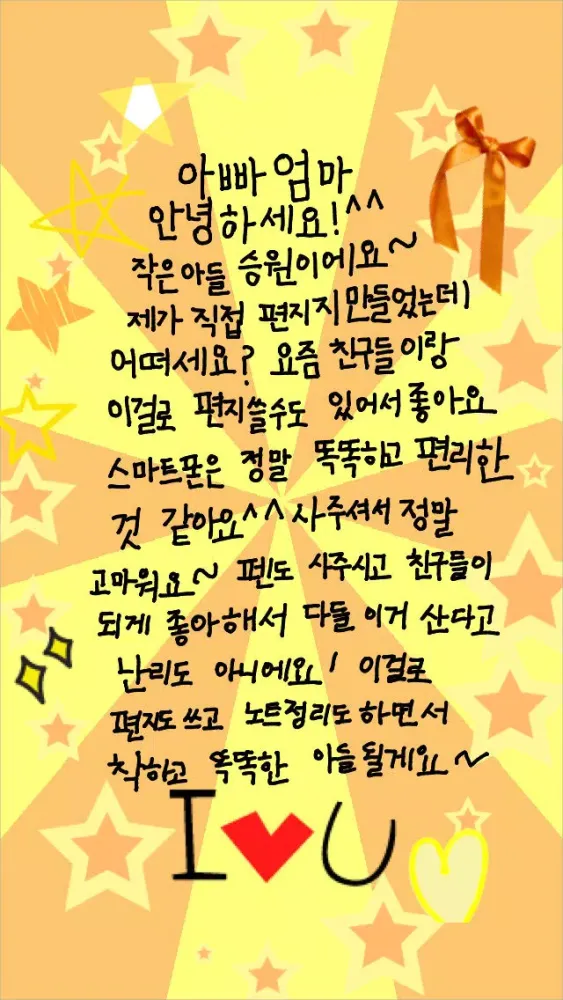 아빠 엄마
안녕하세요!^^
작은아들 승원이에요~
제가 직접 편지지 만들었는데
어떠세요? 요즘 친구들이랑
이걸로 편지쓸수도 있어서 좋아요
스마트폰은 정말 똑똑하고 편리한
것 같아요^^ 사주셔서 정말
고마워요~ 펜도 사주시고 친구들이
되게 좋아해서 다들 이거 산다고
난리도 아니에요! 이걸로
편지도 쓰고 노트정리도 하면서
착하고 똑똑한 아들 될게요~
I ♥ U